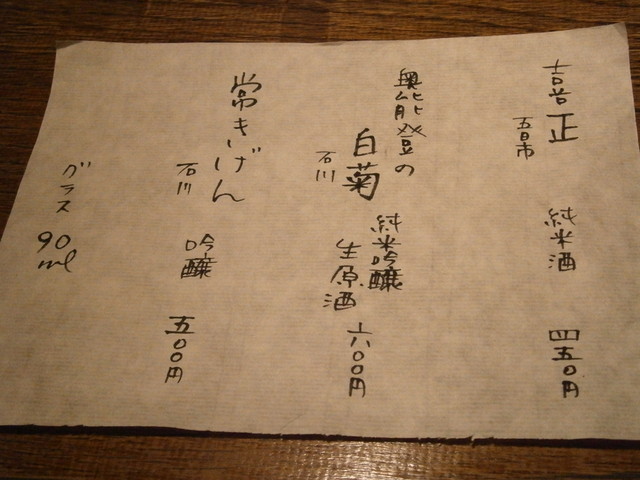 喜正
五日市
純米酒
四五〇円
奥能登の
白菊
石川
純米吟醸
生原酒
六〇〇円
常きげん
石川
吟醸
五〇〇円
グラス
90ml